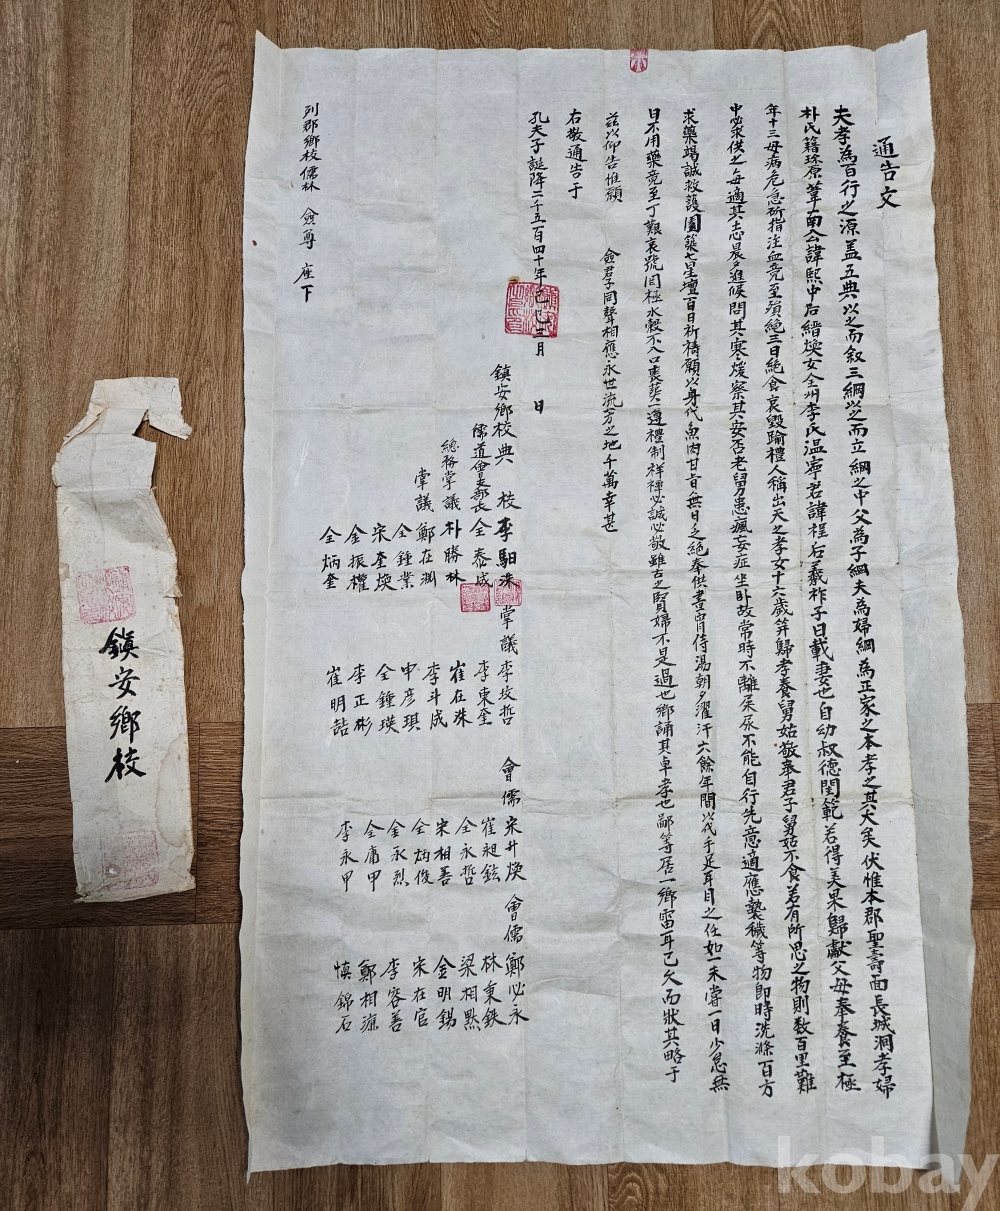 通告文
夫孝為百行之源盖五典以之而叙三綱以之而立綱之中父為子綱夫為婦綱為正家之本孝之其大矣伏惟本郡聖壽面長城洞孝婦
朴氏籍珎原葦南公諱熙中后縉煥女全州李氏温寧君諱裎后羲祚子曰載妻也自幼叔德閨範若得美果歸獻父母奉養至極
年十三母病危急斫指注血竟至殞絶三日絶食哀毁踰禮人稱出天之孝女十六歲笄歸孝養舅姑敬奉君子舅姑不食若有所思之物則数百里難
中必求供之每適其志晨夕進候問其寒煖察其安否老舅患瘋妄症坐卧故常時不離屎尿不能自行先意適應褻穢等物即時洗滌百方
求藥竭誠救護園築七星壇百日祈禱願以身代魚肉甘旨無日乏絶奉供晝宵侍湯朝夕濯汗六餘年間以代手足耳目之任如一未嘗一日少怠無
日不用藥竟至丁艱哀號罔極水穀不入口喪葬一遵禮制祥禫必誠必敬雖古之賢婦不是過也鄉誦其卓孝也鄙等居一鄉雷耳已久而狀其略于
玆以仰告惟願 僉君子同聲相應永世流芳之地千萬幸甚
右敬通告于
孔夫子誕降二千五百四十年己巳二月 日
鎮安鄉校典校 李馹洙 掌議 李玟哲 會儒 宋升煥 會儒 鄭必永
儒道會支部長 全泰成 李東奎 崔昶鉉 林東鉄
總務掌議 朴勝林 崔在洙 全永哲 梁相點
掌議 鄭在渊 李斗成 宋相善 金明錫
全鍾業 申彦琪 全炳俊 宋在官
宋奎煥 全鍾瑛 金永烈 李容善
金振權 李正彬 全庸甲 鄭相源
全炳奎 崔明喆 李永甲 慎錦石
列郡鄉校儒林 僉尊 座下
鎮安鄉校
kobay